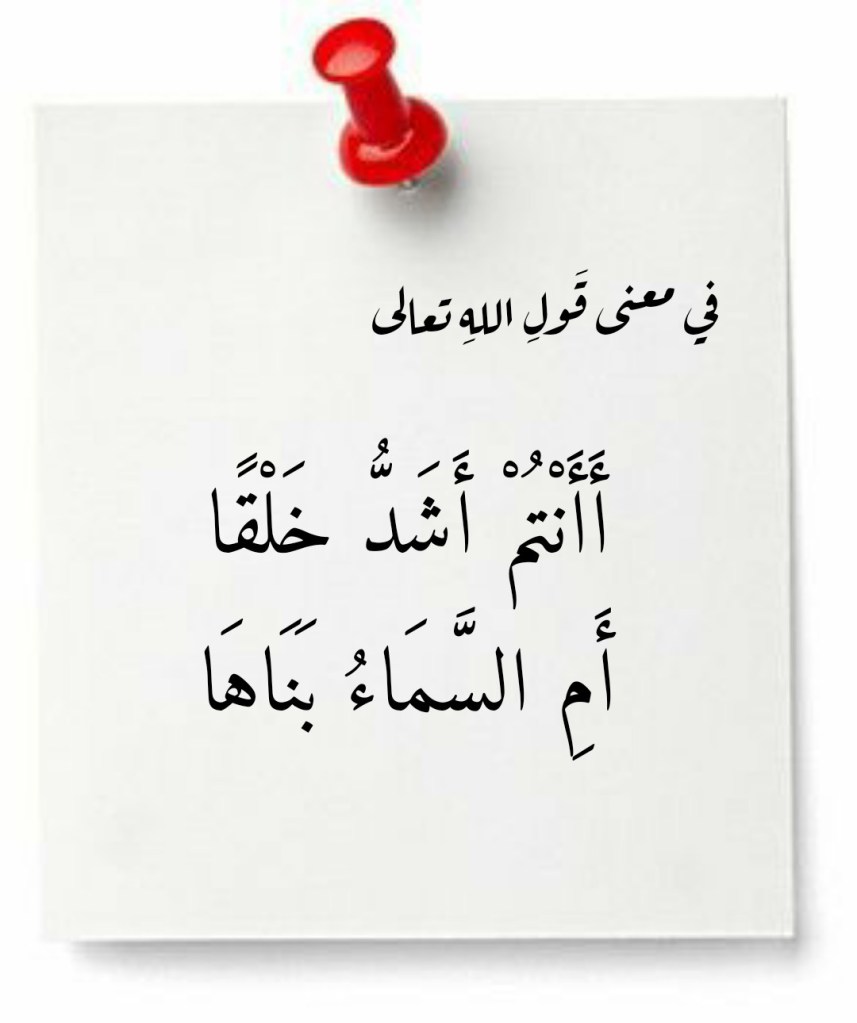 في معنى قَولِ اللهِ تعالى
أَأَنْتُمْ أَشَدُّ خَلْقًا
أَمِ السَّمَاءُ بَنَاهَا